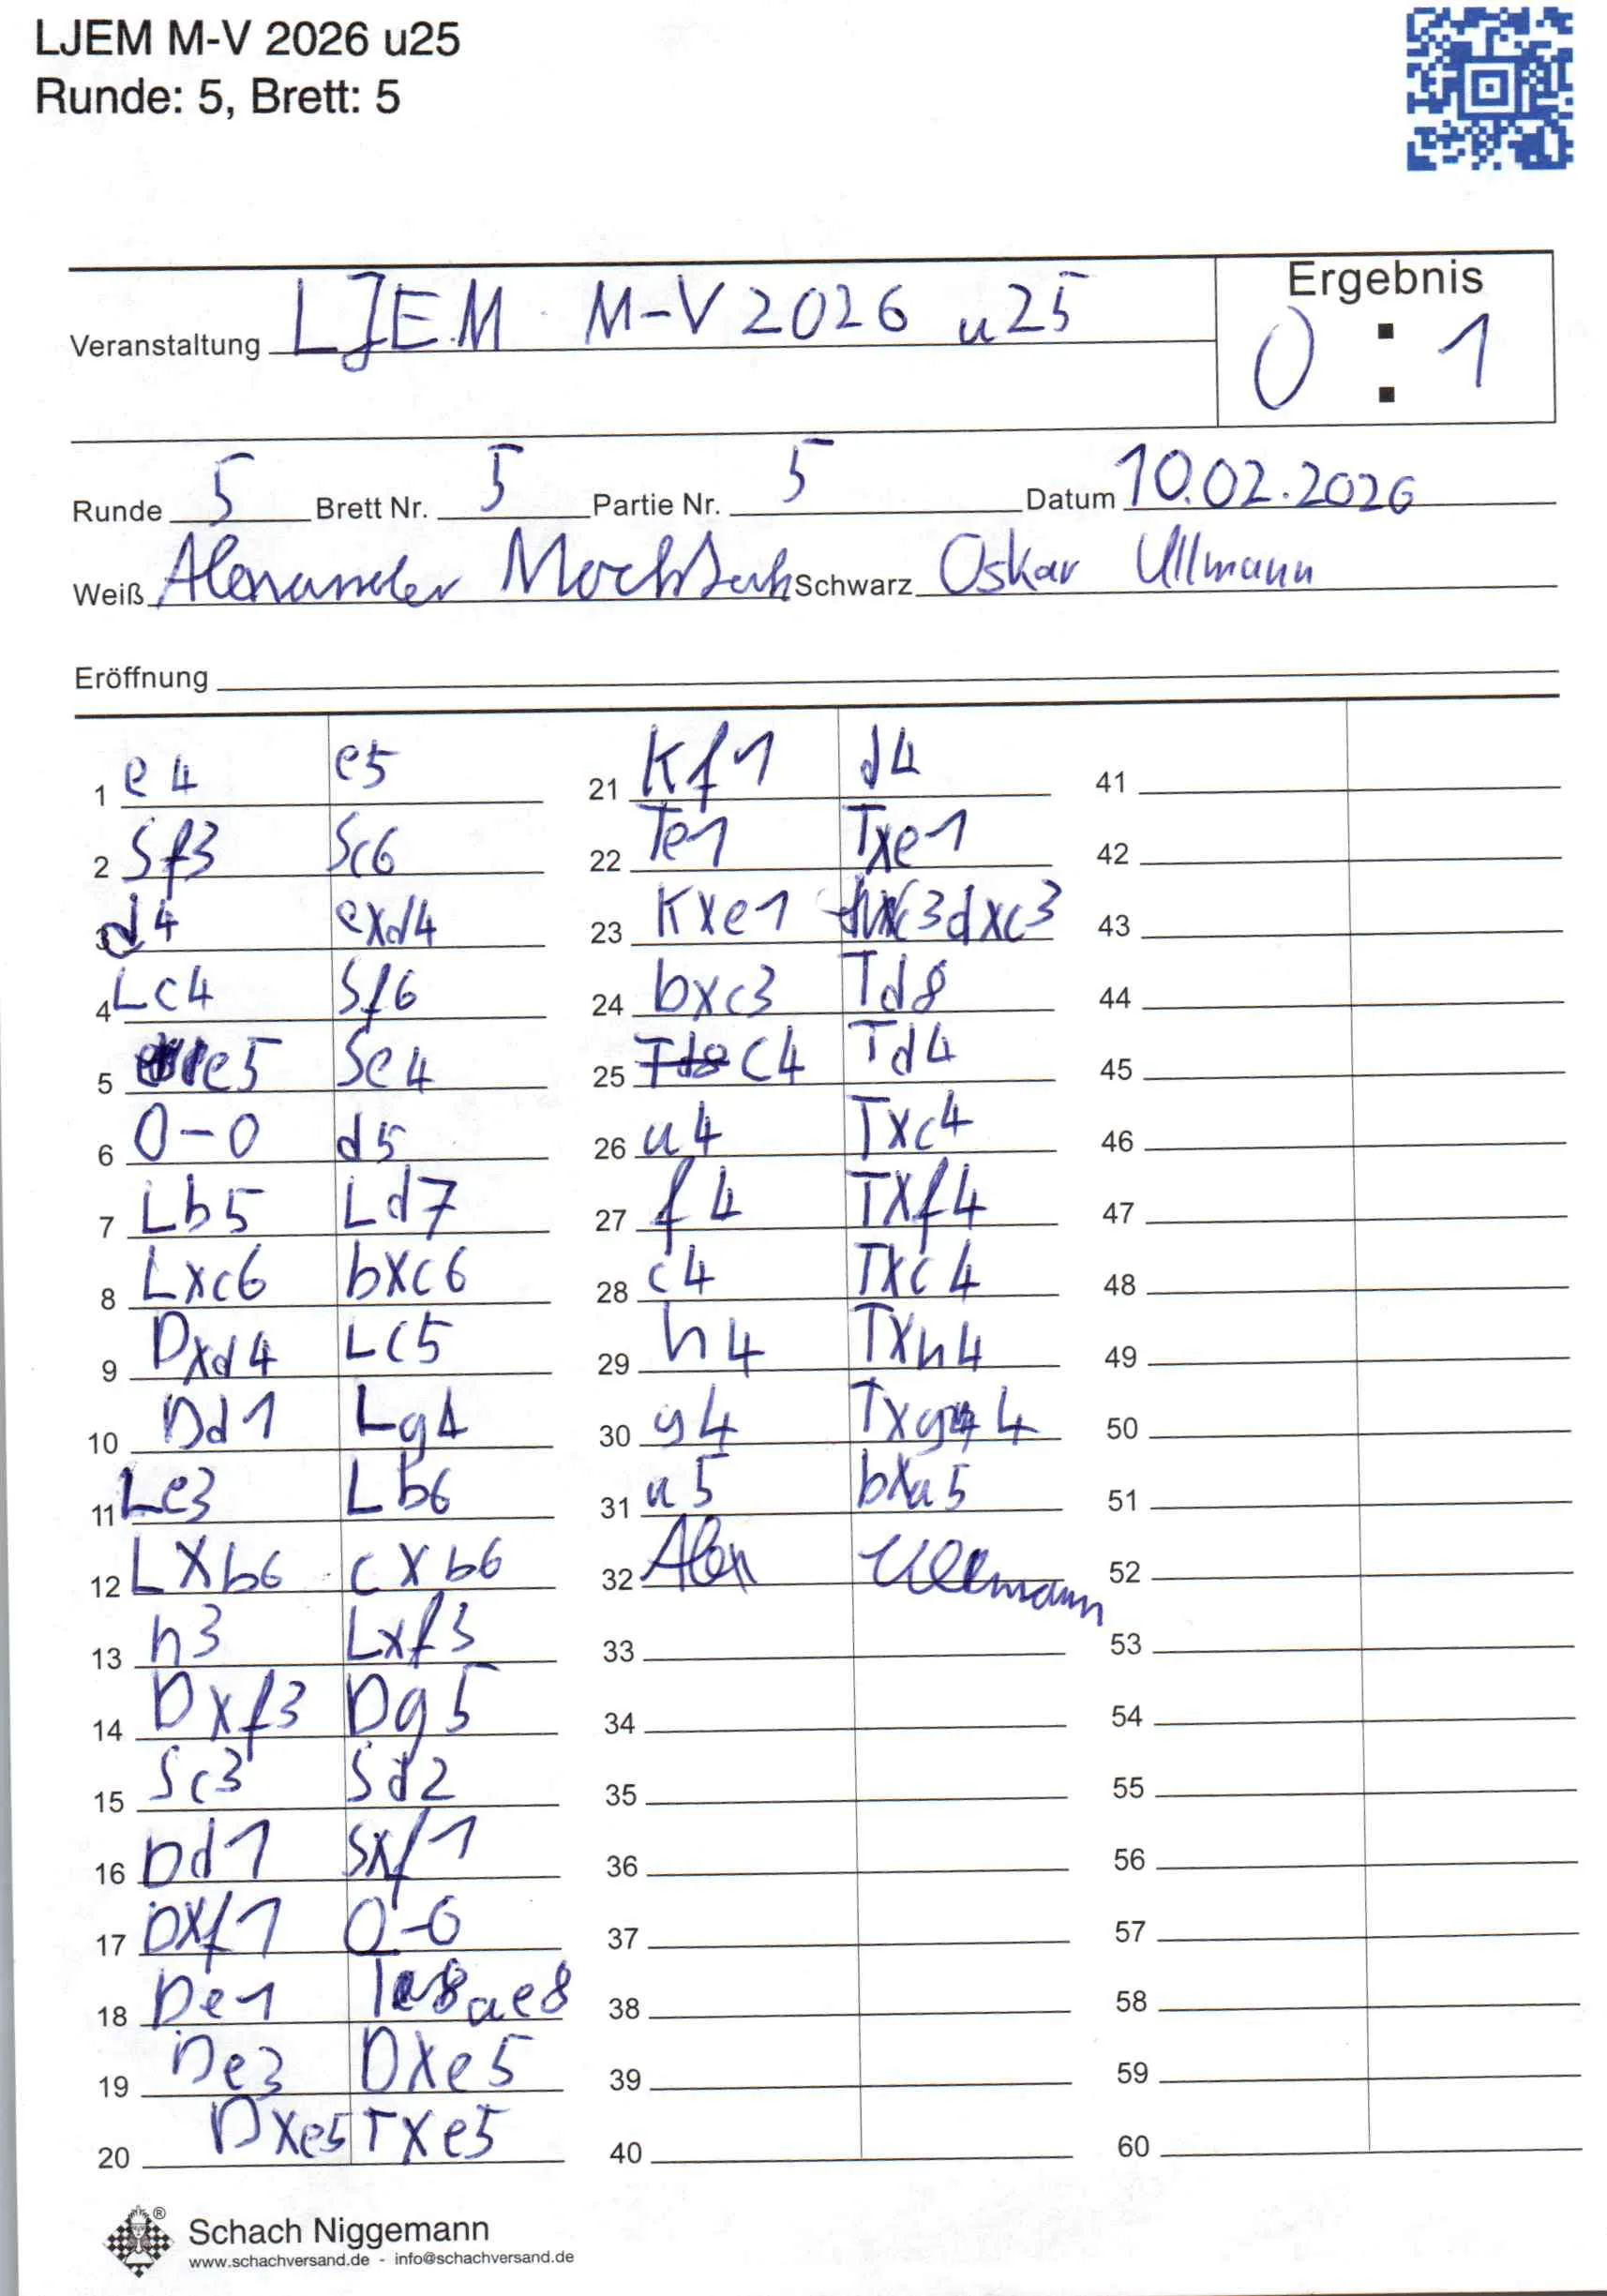 LJEM M-V 2026 u25
Runde: 5, Brett: 5
Ergebnis
Veranstaltung LJEM M-V 2026 u25
0 : 1
Runde 5 Brett Nr. 5 Partie Nr. 5 Datum 10.02.2026
Weiß Alexander Schwarz Oskar Ullmann
Eröffnung
1 e4 e5
2 Sf3 Sc6
3 d4 exd4
4 Lc4 Sf6
5 e5 Se4
6 0-0 d5
7 Lb5 Ld7
8 Lxc6 bxc6
9 Dxd4 Lc5
10 Dd1 Lg4
11 Le3 Lb6
12 LXb6 cXb6
13 h3 Lxf3
14 Dxf3 Dg5
15 Sc3 Sd2
16 Dd1 Sxf1
17 DXf1 0-0
18 De1 Tae8
19 De3 DXe5
20 DXe5 TXe5
21 Kf1 d4
22 Te1 Txe1
23 KXe1 dxc3
24 bxc3 Td8
25 Td8 C4 Td4
26 a4 TXc4
27 f4 TXf4
28 c4 TXc4
29 h4 TXh4
30 g4 Txg4
31 a5 bXa5
32 Alex Ullmann
33
34
35
36
37
38
39
40
41
42
43
44
45
46
47
48
49
50
51
52
53
54
55
56
57
58
59
60
Schach Niggemann
www.schachversand.de - info@schachversand.de